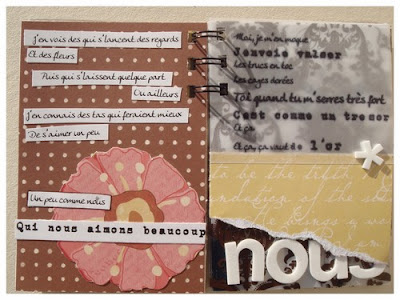 j'en vois des qui s'lancent des regards
Et des fleurs
Puis qui s'laissent quelque part
Ou ailleurs
J'en connais des tas qui feraient mieux
De s'aimer un peu
Un peu comme nous
Qui nous aimons beaucoup
Moi, je m'en moque
J'envoie valser
Les trucs en toc
Les cages dorées
Toi quand tu m'serres très fort
C'est comme un tresor
Et ça
Et ça, ça vaut de l'or
to be the truth
undation of the
nous